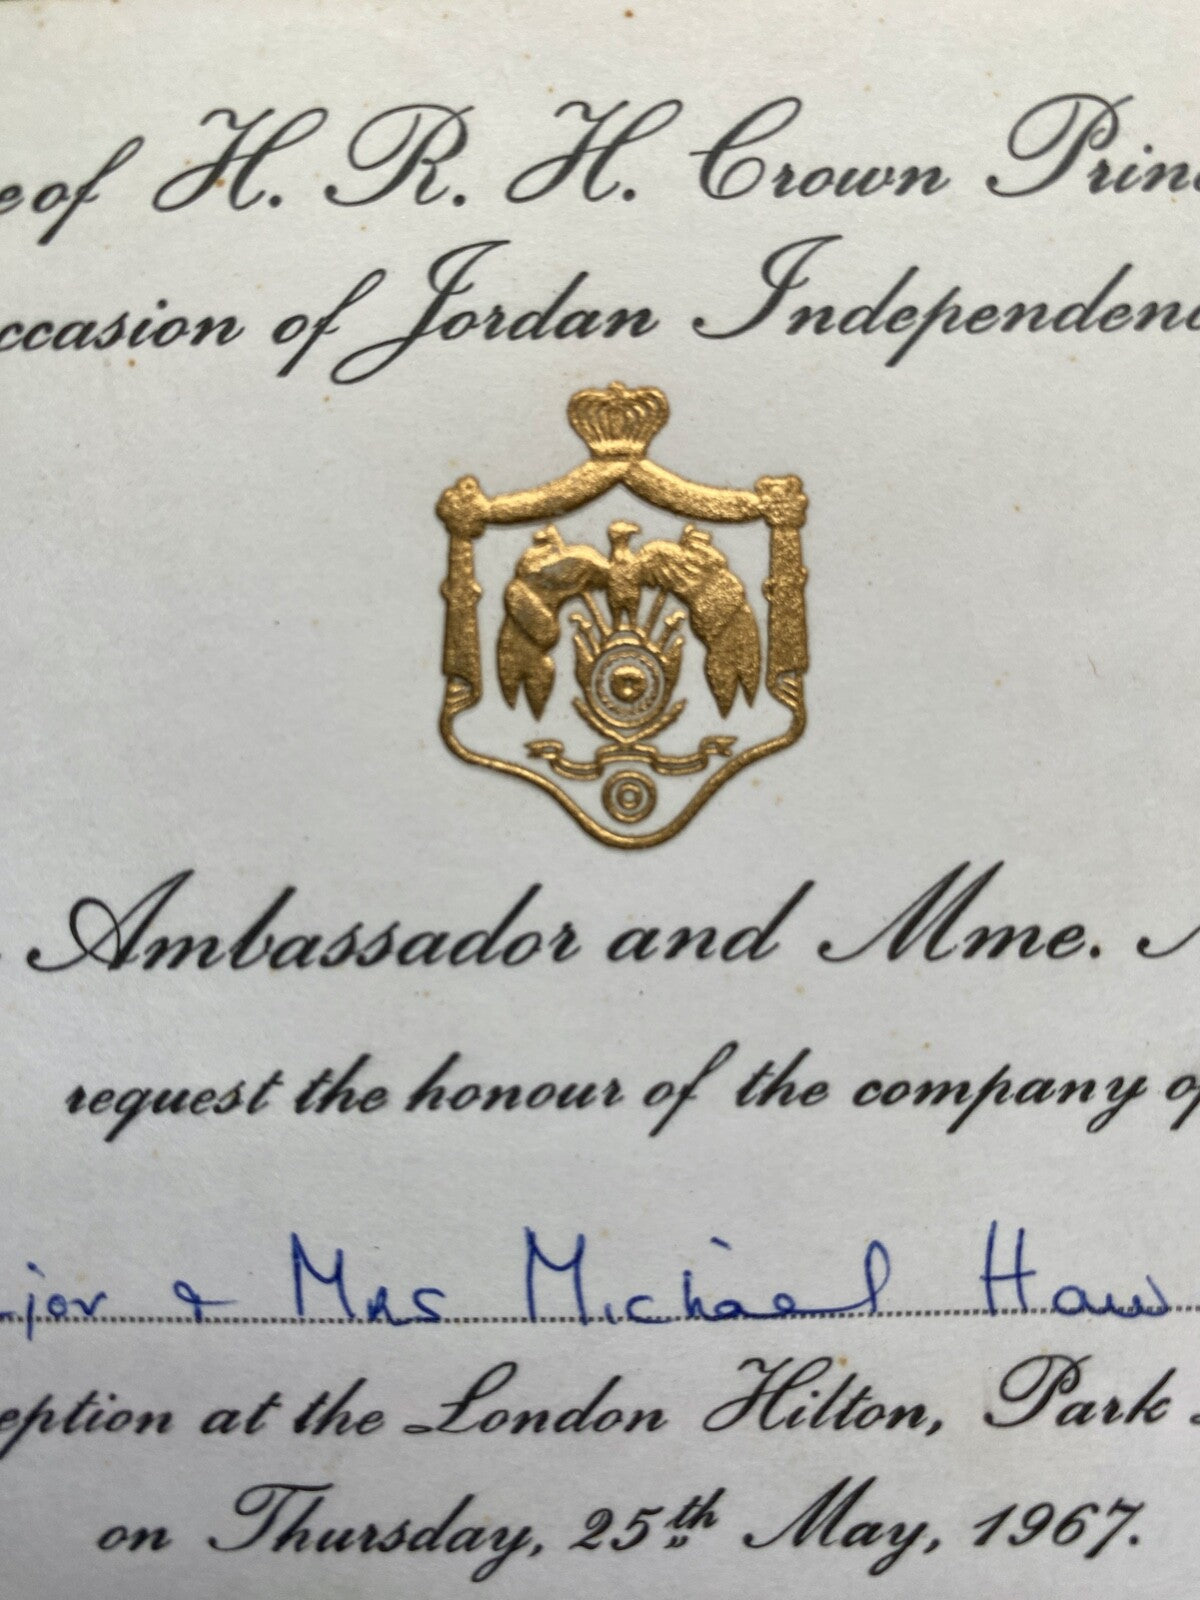 e of H. R. H. Crown Prin
ccasion of Jordan Independenc
Ambassador and Mme.
request the honour of the company of
jor & Mrs Michael Haw
eption at the London Hilton, Park
on Thursday, 25th May, 1967.